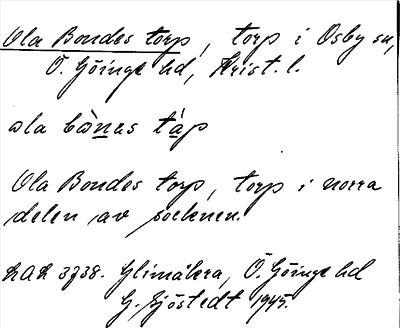 Ola Bondes torp, torp i Osby sn,
Ö. Göinge hd, Krist. l.
ola bònas tàp
Ola Bondes torp, torp i norra
delen av socknen.
LAL 3738. Glimåkra, Ö. Göinge hd
G. Sjöstedt 1945.